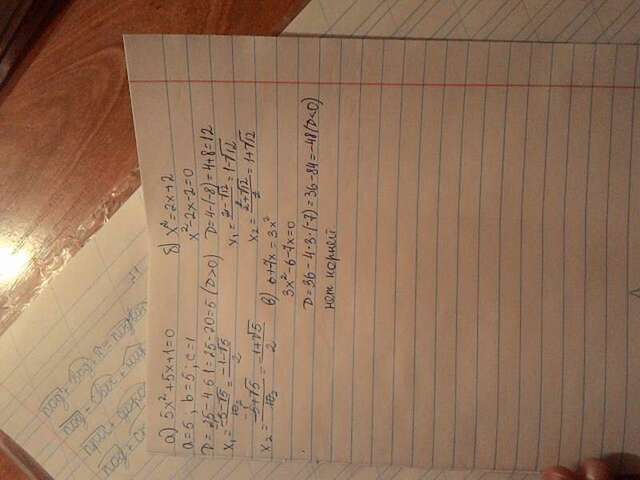 а) 5x² + 5x + 1 = 0
a = 5, b = 5; c = 1
D = 25 - 4·5·1 = 25 - 20 = 5 (D>0)
x₁ = (-5-√5)/10 = (-1-√5)/2
x₂ = (-5+√5)/10 = (-1+√5)/2
б) x² = 2x + 2
x² - 2x - 2 = 0
D = 4 - (-8) = 4 + 8 = 12
x₁ = (2-√12)/2 = 1-√12
x₂ = (2+√12)/2 = 1+√12
в) 6 + 7x = 3x²
3x² - 6 - 7x = 0
D = 36 - 4·3·(-7) = 36 - 84 = -48 (D<0)
нет корней